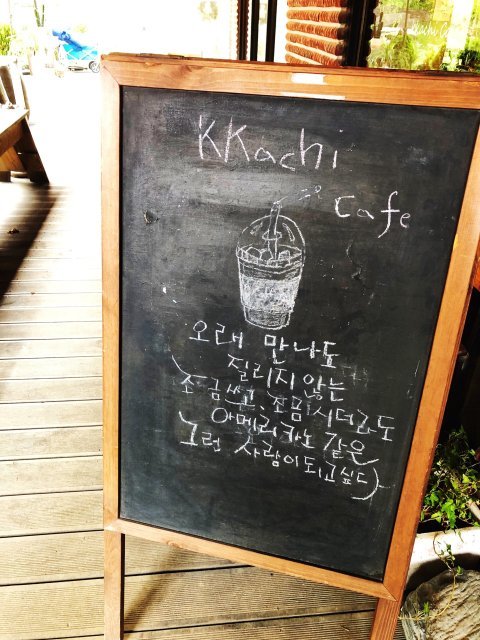 KKachi
Cafe
오래 만나도
질리지 않는
조금 쓰고, 조금 시더라도
아메리카노 같은
그런 사람이 되고 싶다